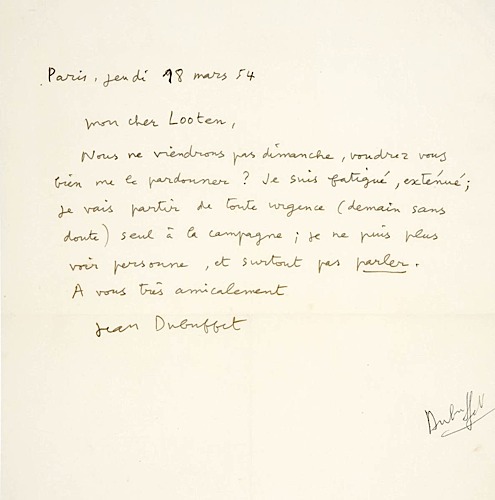 Paris, jeudi 18 mars 54
mon cher Looten,
Nous ne viendrons pas dimanche, voudrez vous
bien me le pardonner ? Je suis fatigué, exténué ;
je vais partir de toute urgence (demain sans
doute) seul à la campagne ; je ne puis plus
voir personne, et surtout pas parler.
A vous très amicalement
Jean Dubuffet
Dubuffet